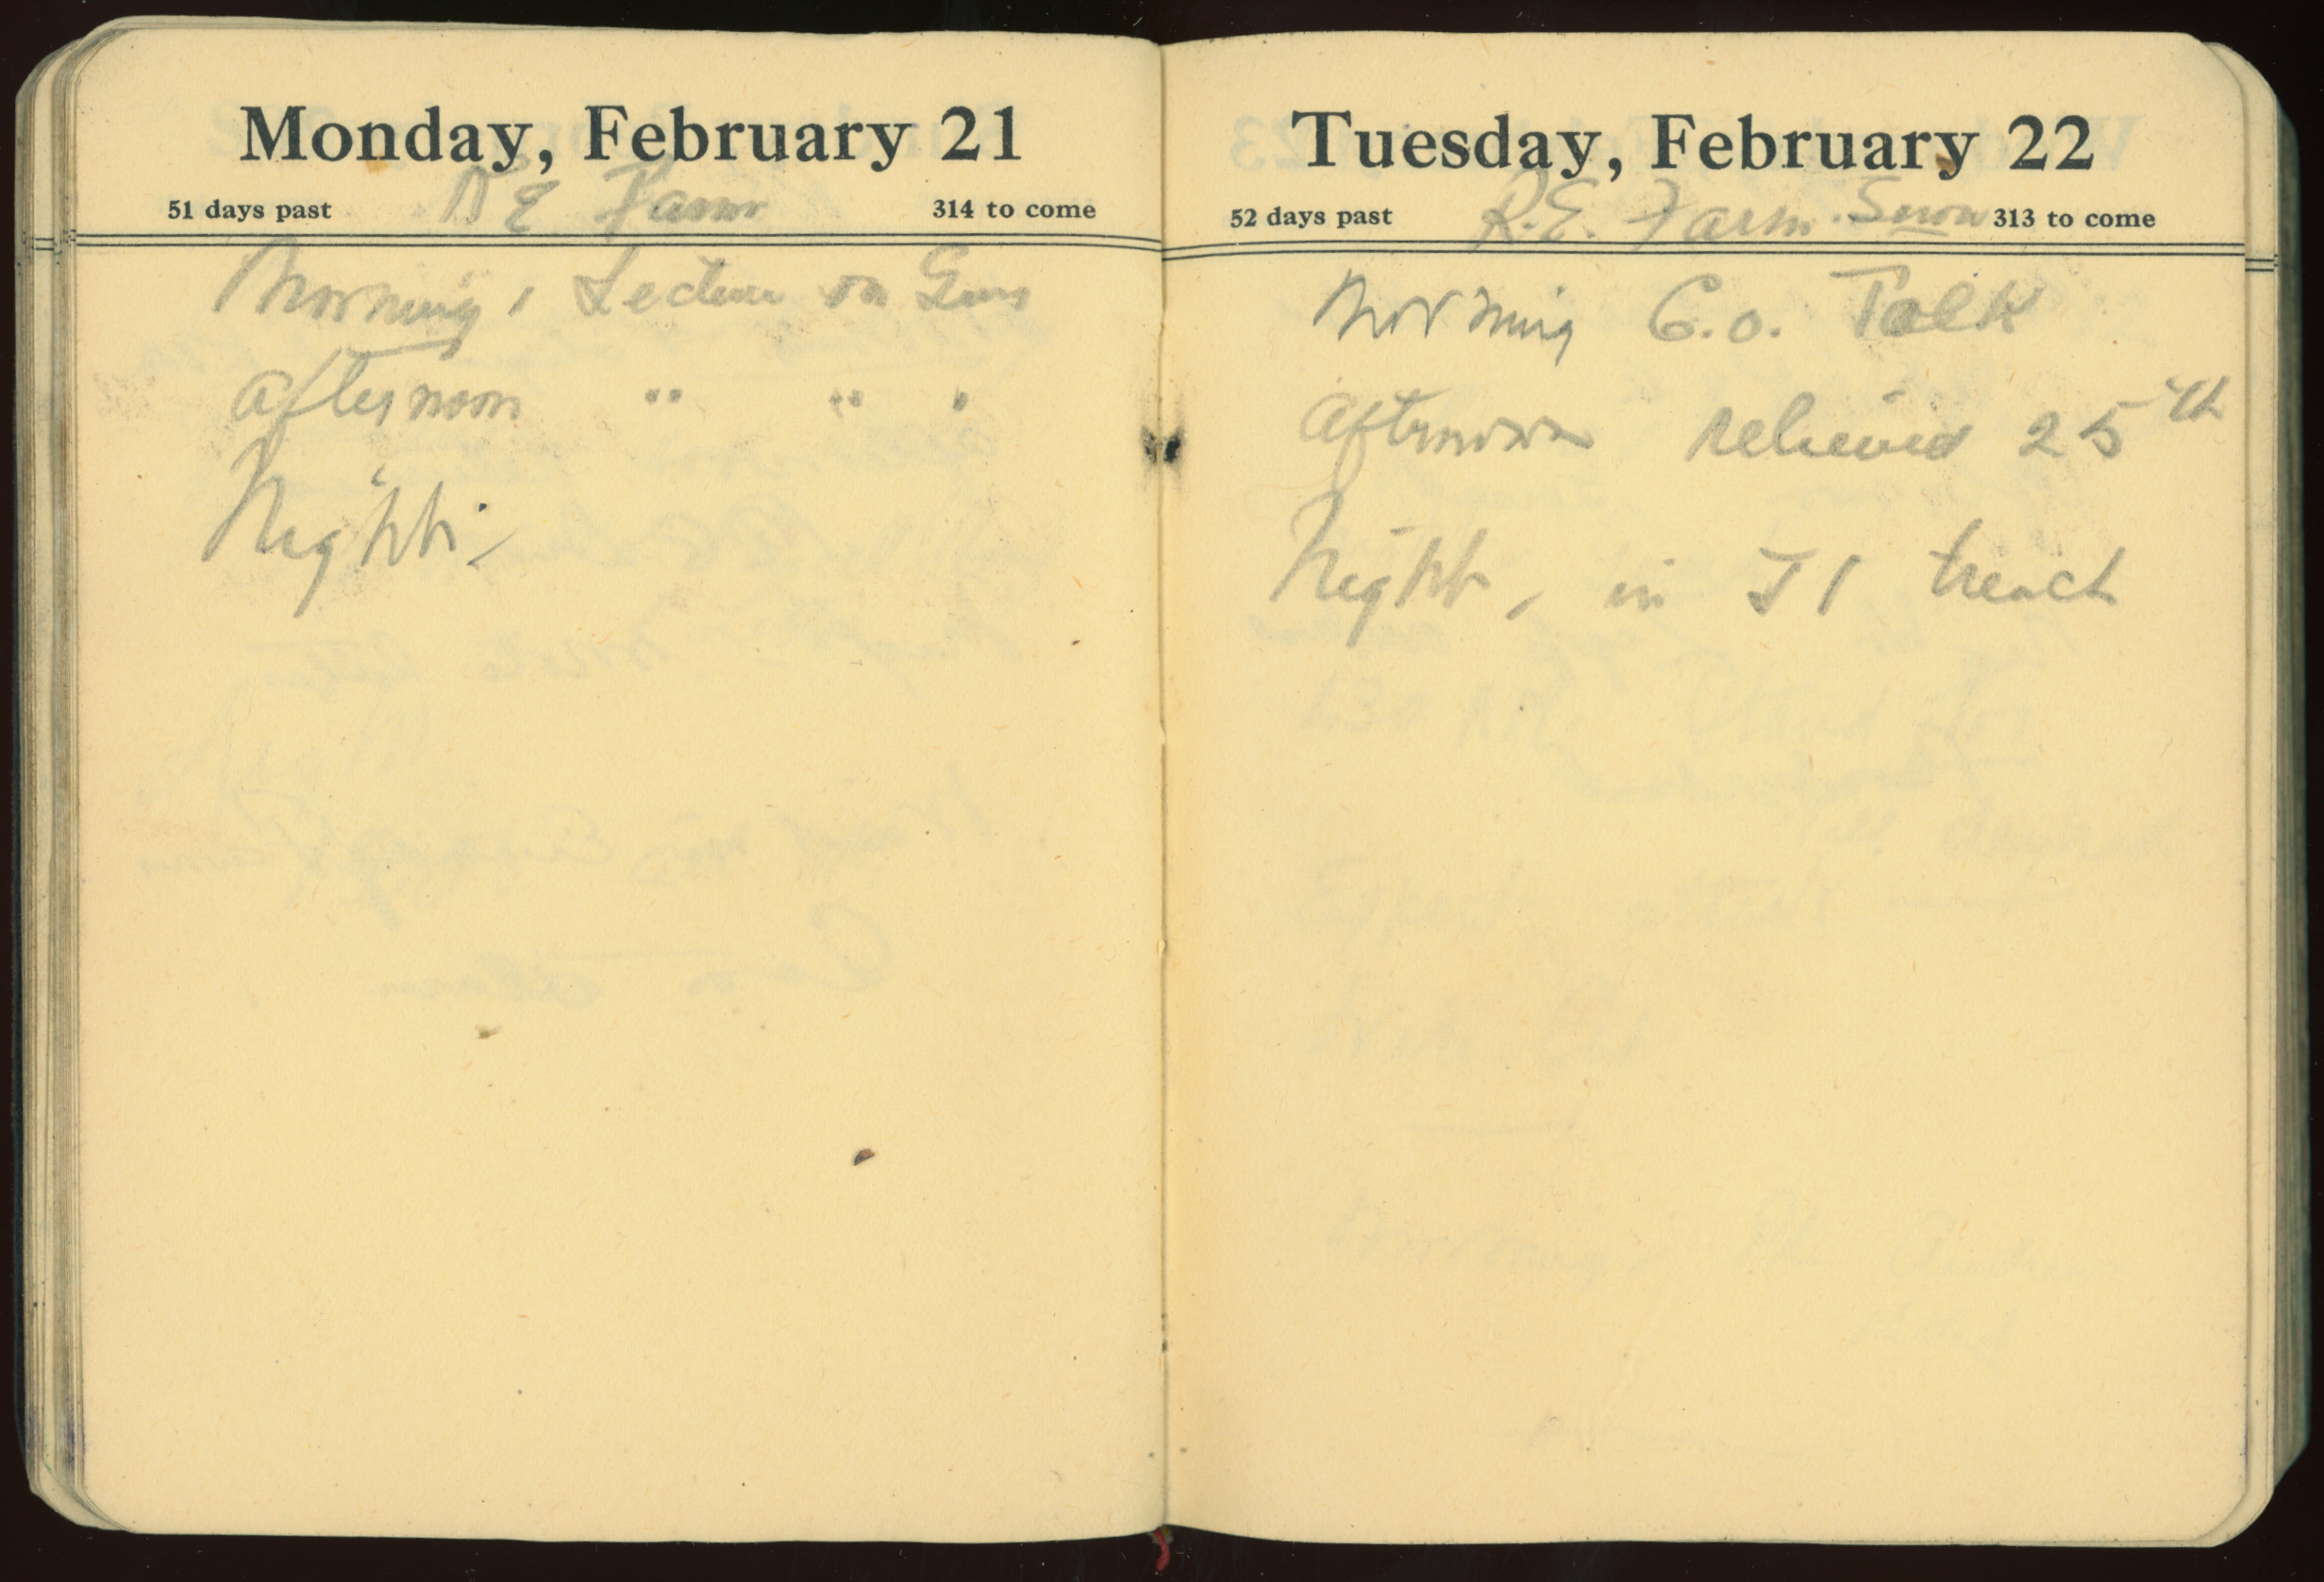 Monday, February 21
51 days past R E Farm 314 to come
Morning, Lecture on Guns
afternoon " " "
Night :-
Tuesday, February 22
52 days past R.E. Farm. Snow 313 to come
Morning C.O. Talk
afternoon relieved 25th
Night, in T1 trench